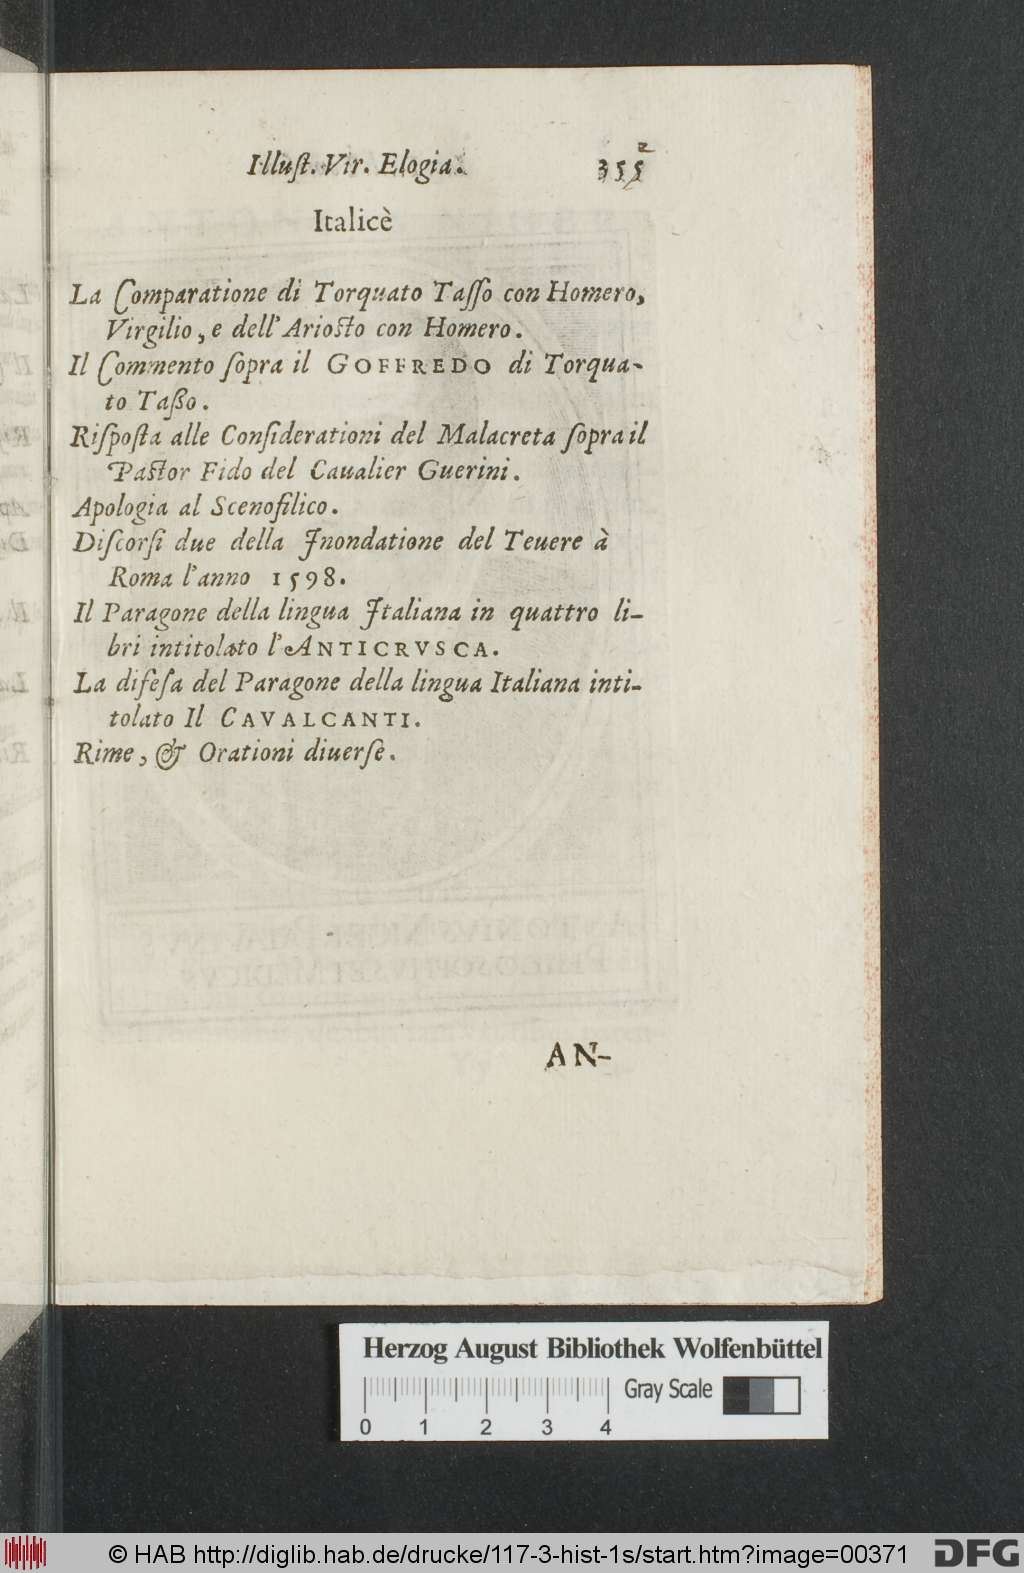 Illuſt. Vir. Elogia. 355
2
Italicè
La Comparatione di Torquato Taſſo con Homero,
Virgilio, e dell'Arioſto con Homero.
Il Commento ſopra il GOFFREDO di Torqua-
to Taßo.
Riſpoſta alle Conſiderationi del Malacreta ſopra il
Paſtor Fido del Caualier Guerini.
Apologia al Scenofilico.
Diſcorſi due della Inondatione del Teuere à
Roma l'anno 1598.
Il Paragone della lingua Italiana in quattro li-
bri intitolato l'ANTICRVSCA.
La difeſa del Paragone della lingua Italiana inti-
tolato Il CAVALCANTI.
Rime, & Orationi diuerſe.
AN-
Herzog August Bibliothek Wolfenbüttel
Gray Scale
0 1 2 3 4
© HAB http://diglib.hab.de/drucke/117-3-hist-1s/start.htm?image=00371
DFG